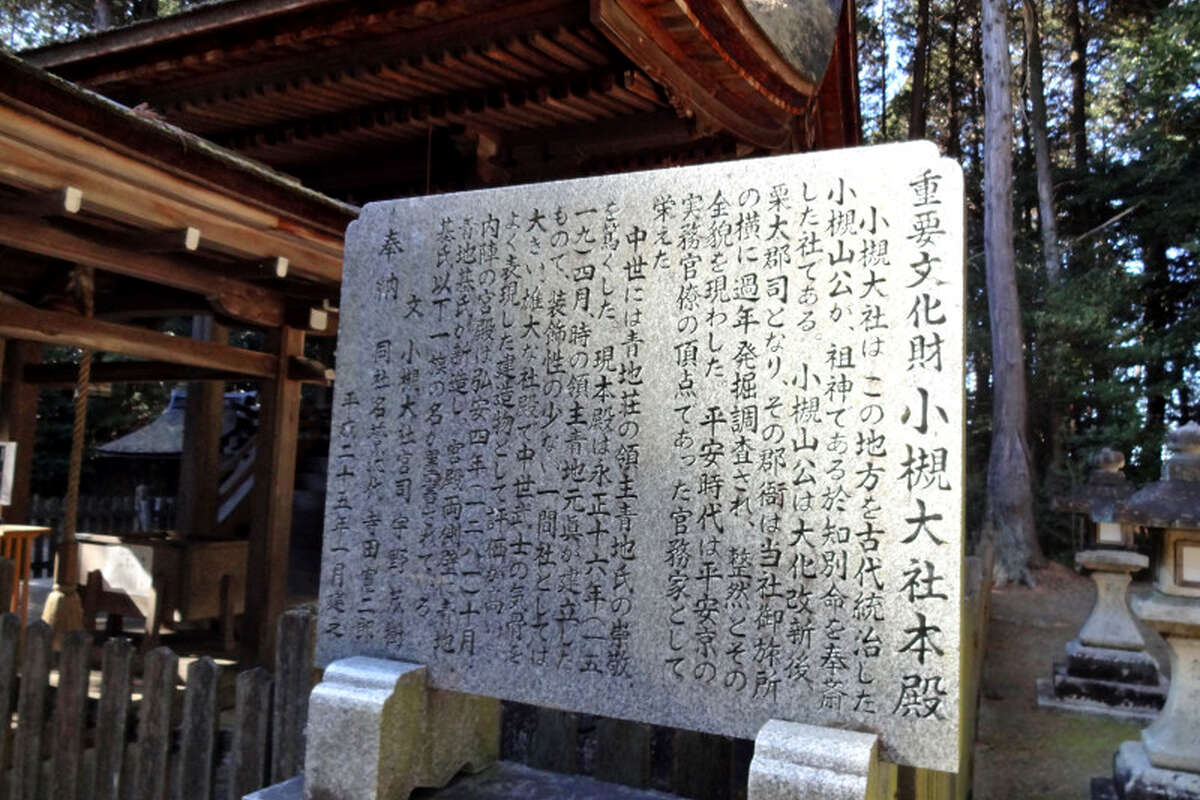 重要文化財小槻大社本殿
小槻大社は この地方を古代統治した
小槻山公が、祖神である於知別命を奉斎
した社である。 小槻山公は大化改新後、
栗太郡司となり、その郡衙は当社御旅所
の横に過年発掘調査され、整然とその
全貌を現わした。 平安時代は平安京の
実務官僚の頂点であった官務家として
栄えた
中世には青地荘の領主青地氏の崇敬
を篤くした。 現本殿は永正十六年(一五
一九)四月、時の領主青地元眞が建立した
もので、装飾性の少ない一間社としては
大きい、雄大な社殿で中世武士の気骨を
よく表現した建造物として評価が高い
内陣の宮殿は弘安四年(一二八一)十月
青地基氏が新造し、宮殿両側壁に青地
基氏以下一族の名が墨書されている
奉納 文 小槻大社宮司 宇野茂樹
同社名誉総代 寺田
平成二十五年一月建之